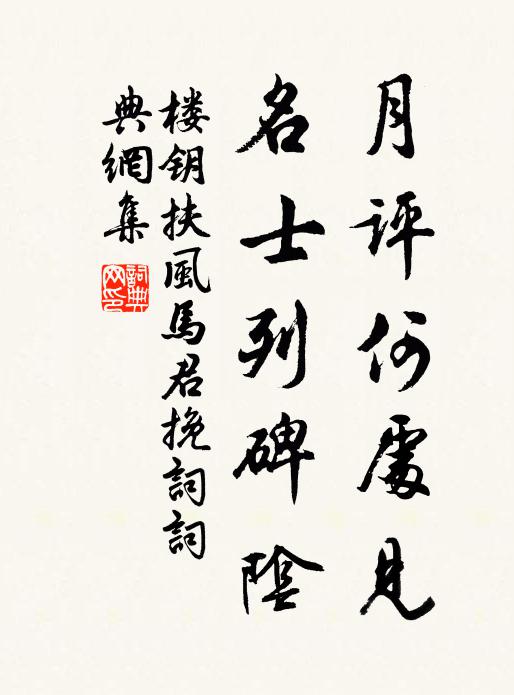 月评何處見
名士列碑陰
楼钥扶風馬君挽詞詞
典網集
詞典网印